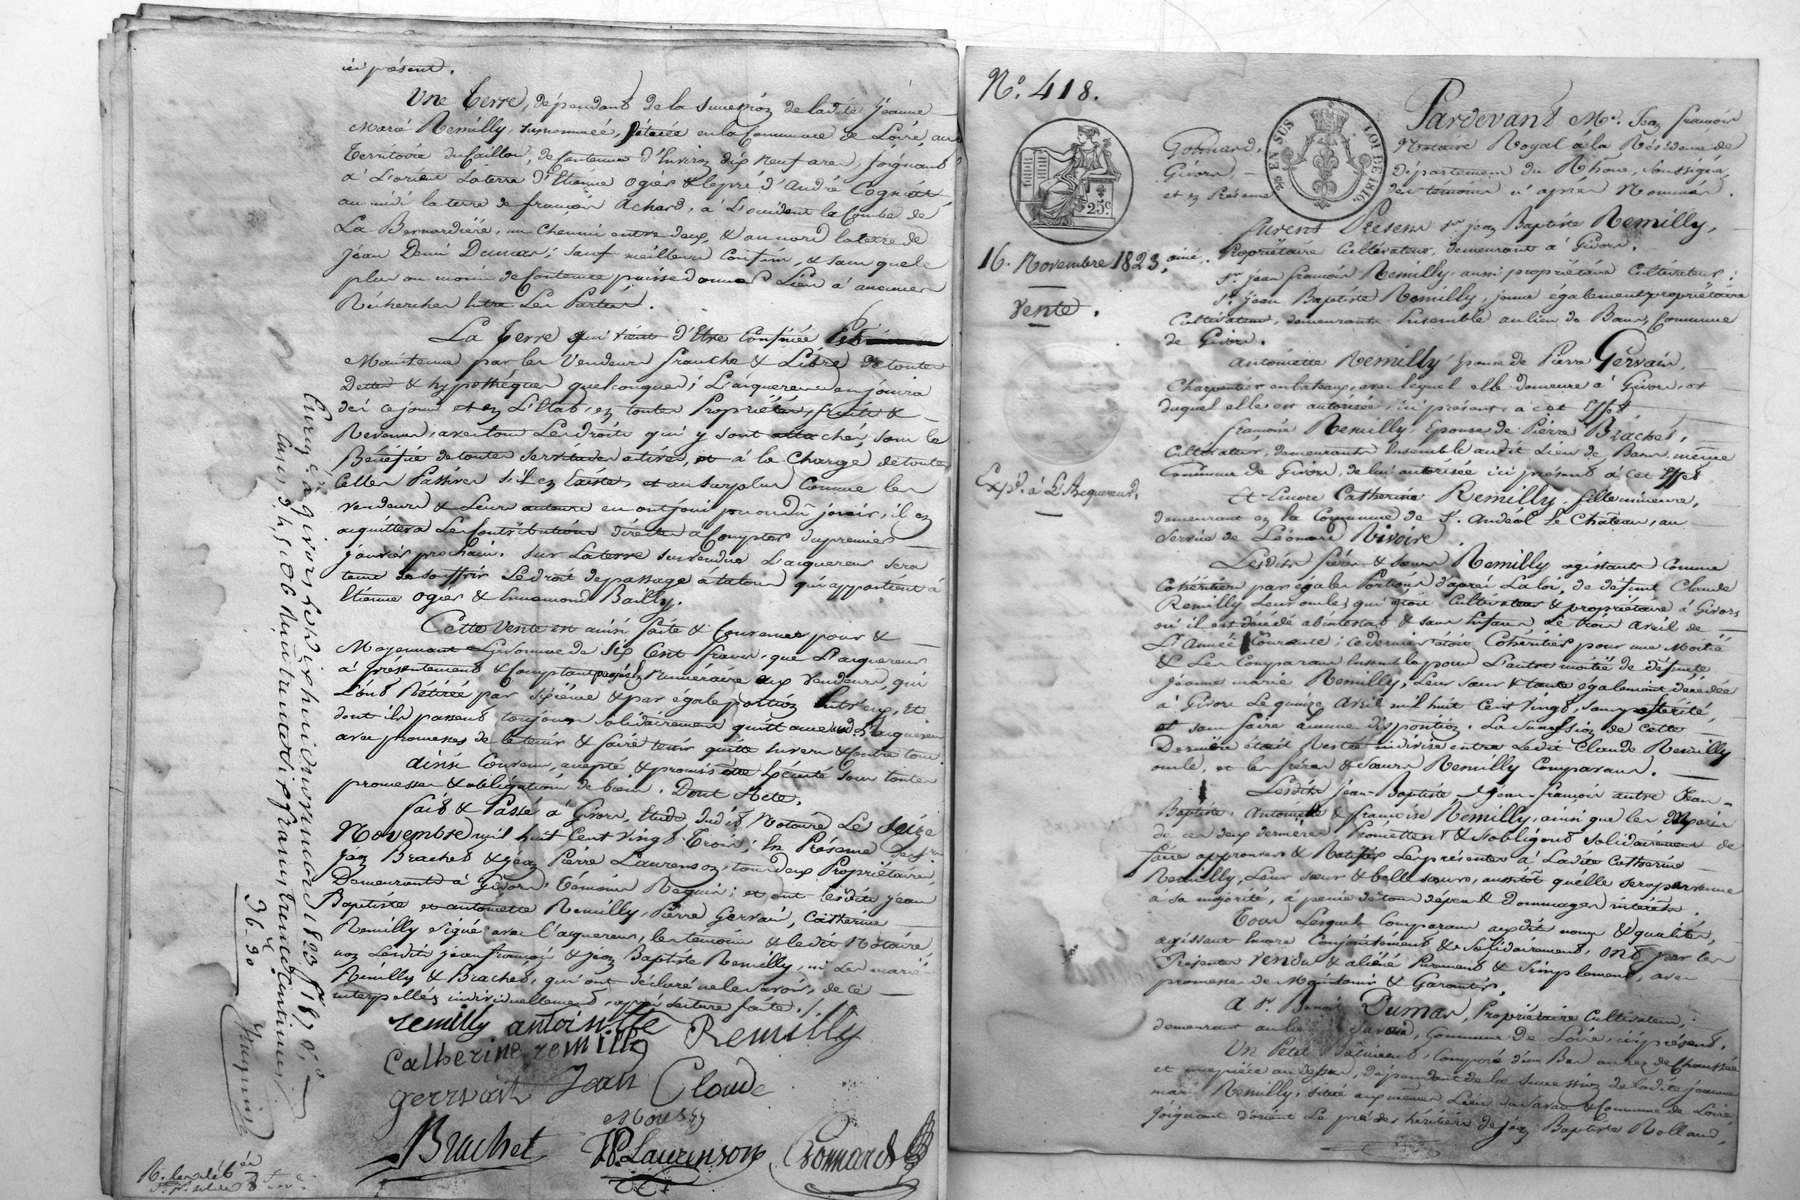 ici présent.
Une Terre, dépendant de la succession de ladite Jeanne
Marie Remilly, surnommée, située en la Commune de Loire, au
Territoire du Caillou, de contenue d'Environ dix neuf ares, joignant
à L'orient La terre d'Etienne Ogier & le pré d'André Cognat
au midi la terre de françois Achard, à L'occident la Combe de
La Bernardière, un chemin entre deux, & au nord la terre de
Jean Deni Dumas; sauf meilleurs confins, & sans que le
plus ou moins de contenue puisse donner Lieu à aucunes
Recherches Entre Les Parties.
La Terre qui vient d'Etre Confinée Est
Maintenue par les Vendeurs franche & Libre de toutes
Dettes & hypothèques quelconques; L'acquereur en jouira
dès ce jour et en L'Etat, en toutes Propriétés, fruits &
Revenus, avec tous Les droits qui y sont attachés, sous le
Bénéfice de toutes servitudes actives, et à la Charge de toutes
Celles Passives S'il en Existe, et au surplus Comme les
vendeurs & Leurs auteurs en ont joui pu ou du jouir, il en
acquittera Les Contributions directes à Compter du premier
janvier prochain. Sur La terre sus vendue L'acquereur sera
tenu de souffrir Le droit de passage à talon qui appartient à
Etienne Ogier & Ennemond Bailly.
Cette Vente est ainsi faite & Convenue pour &
Moyennant La somme de Six Cent francs, que L'acquereur
a présentement & Comptant payés en Numéraire aux Vendeurs, qui
L'ont Retirée par sixième & par égale portion Entr'eux, Et
dont ils passent toujours solidairement quittance audit acquereur
avec promesse de Le tenir & faire tenir quitte Envers & Contre tous.
Ainsi Convenu, accepté & promis être Exécuté sous toutes
promesses & obligations de biens. Dont Acte.
Fait & Passé à Givors, Etude dudit Notaire Le Seize
Novembre mil huit Cent Vingt Trois; En Présence de Srs
Jean Brachet & Jean Pierre Laurenson, tous deux Propriétaires,
Demeurants à Givors, Témoins Requis; et ont Lesdits Jean
Baptiste et Antoinette Remilly, Pierre Gervais, Catherine
Remilly signé avec l'acquereur, les témoins & ledit Notaire,
non Lesdits Jean françois & Jean Baptiste Remilly, ni Les mariés
Remilly & Brachet, qui ont déclaré ne le savoir, de ce
interpellés individuellement, après lecture faite.
remilly antoinette Remilly
Catherine remilly
gerrvais Jean Claude
Brachet JP. Laurenson Gonnard
Enreg. à Givors, le dix huit novembre 1823
36-30
N.º 418.
25c
25 EN SUS LOI DE 1816.
16. Novembre 1823.
Vente.
Expd. à L'Acquereur.
Pardevant Me. Jean françois
Gonnard, Notaire Royal à la Résidence de
Givors, département du Rhône, Soussigné,
et en Présence des témoins ci après Nommés.
Furent Présens Sr. Jean Baptiste Remilly,
ainé, Propriétaire Cultivateur, demeurant à Givors.
Sr. Jean françois Remilly aussi propriétaire Cultivateur;
Sr. Jean Baptiste Remilly, jeune également propriétaire
Cultivateur, demeurants Ensemble au lieu de Bans, Commune
de Givors.
Antoinette Remilly Epouse de Pierre Gervais,
Charpentier en bateaux, avec lequel elle demeure à Givors, et
duquel elle est autorisée, ici présent à cet Effet
françoise Remilly Epouse de Pierre Brachet,
Cultivateur, demeurants Ensemble audit Lieu de Bans, même
Commune de Givors, de lui autorisée ici présent à cet Effet
Et Encore Catherine Remilly fille mineure,
demeurant en la Commune de St. Andéol Le Château, au
Service de Léonard Rivoire.
Lesdits frères & Sœurs Remilly agissants Comme
Cohéritiers par égales Portions d'après La loi, de défunt Claude
Remilly Leur oncle, qui étoit Cultivateur & propriétaire à Givors
où il est décédé abintestat & sans Enfans Le trois Avril de
L'Année Courante; ce dernier étoit Cohéritier pour une Moitié
& Les Comparans Ensemble pour L'autre moitié de défunte
Jeanne marie Remilly, Leur sœur & tante également décédée
à Givors Le quinze Avril mil huit Cent Vingt, sans postérité,
et sans faire aucune disposition. La Succession de Cette
Dernière étoit Restée indivise entre Ledit Claude Remilly
oncle, et les frères & Sœurs Remilly Comparans.
Lesdits Jean-Baptiste Jean-françois autre Jean-
Baptiste, Antoinette & françoise Remilly, ainsi que les Maris
de ces deux dernières, Promettent & s'obligent solidairement de
faire approuver & Ratifier Les présentes à Ladite Catherine
Remilly, Leur sœur & belle sœur, aussitôt qu'elle sera parvenue
à sa majorité, à peine de tous dépens & Dommages intérêts.
Tous Lesquels Comparans auxdits noms & qualités,
agissant Encore Conjointement & Solidairement, ont par les
Présentes Vendu & aliéné Purement & Simplement, avec
promesse de Maintenir & Garantir,
A Sr. Benoit Dumas, Propriétaire Cultivateur,
demeurant au lieu de Savoie, Commune de Loire, ici présent,
Un Petit Bâtiment, Composé d'un Bas au rez de Chaussée
et une pièce au dessus, dépendant de la Succession de ladite Jeanne
marie Remilly, situé au même Lieu de Savoie & Commune de Loire
joignant d'orient Le pré des héritiers de Jean Baptiste Rolland,